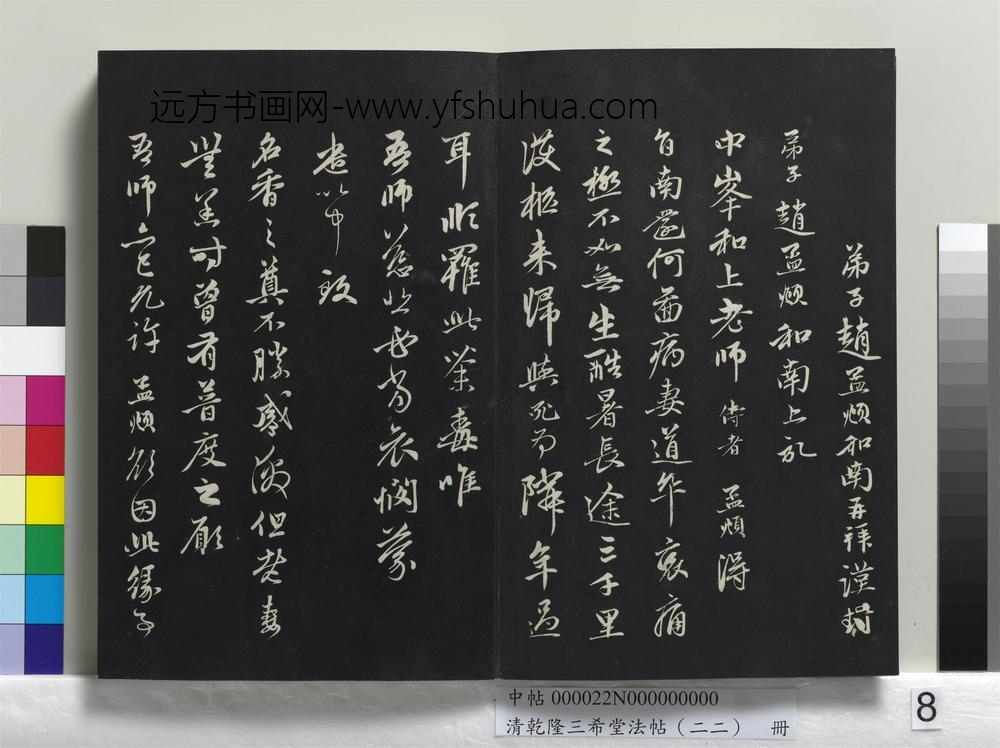 远方书画网-www.yfshuhua.com
弟子趙孟頫和南再拜謹封
弟子趙孟頫和南上記
中峯和上老師 侍者 孟頫得
旨南還何啚病妻道卒哀痛
之極不如無生酷暑長途三千里
護柩来歸與死為隣年過
耳順罹此荼毒唯
吾師慈悲必當哀憫蒙
遣以中致
名香之奠不勝感激但老妻
無恙時曾有普度之願
吾師亦已允許孟頫欲因此緣事
中帖 000022N000000000
清乾隆三希堂法帖(二二) 冊
8